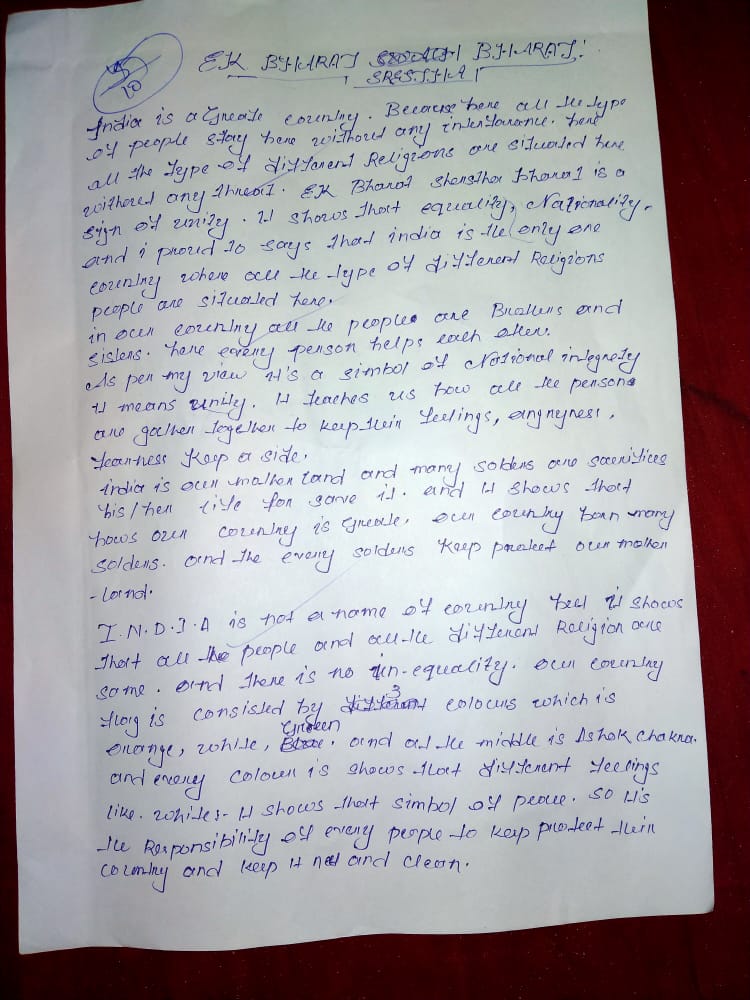 EK BHARAT BHARAT!
SRESTHA
10
India is a Greate country. Because here all the type
of people stay here without any interfarance. here
all the type of different Religions are situated here
without any threat. EK Bharat Shersther bharat is a
sign of unity. It shows that equality, Nationality.
and i proud to says that india is the only one
country where all the type of different Religions
people are situated here.
in our country all the people are Brothers and
sisters. here every person helps each other.
As per my view it's a simbol of National integrety
it means unity. It teaches us how all the persons
are gather together to keep their feelings, angryness,
fearness Keep a side.
india is our mother land and many solders are sacrifices
his/her life for save it. and it shows that
hows our country is Greate. our country born many
solders. and the every solders Keep protect our mother
- land.
I.N.D.I.A is not a name of country but it shows
that all the people and all the different Religion are
same. and there is no un-equality. our country
flag is consisted by 3 colours which is
orange, white, Green. and at the middle is Ashok chakra.
and every colour is shows that different feelings
like. white:- It shows that simbol of peace. so it's
the Responsibility of every people to keep protect their
country and keep it neat and clean.